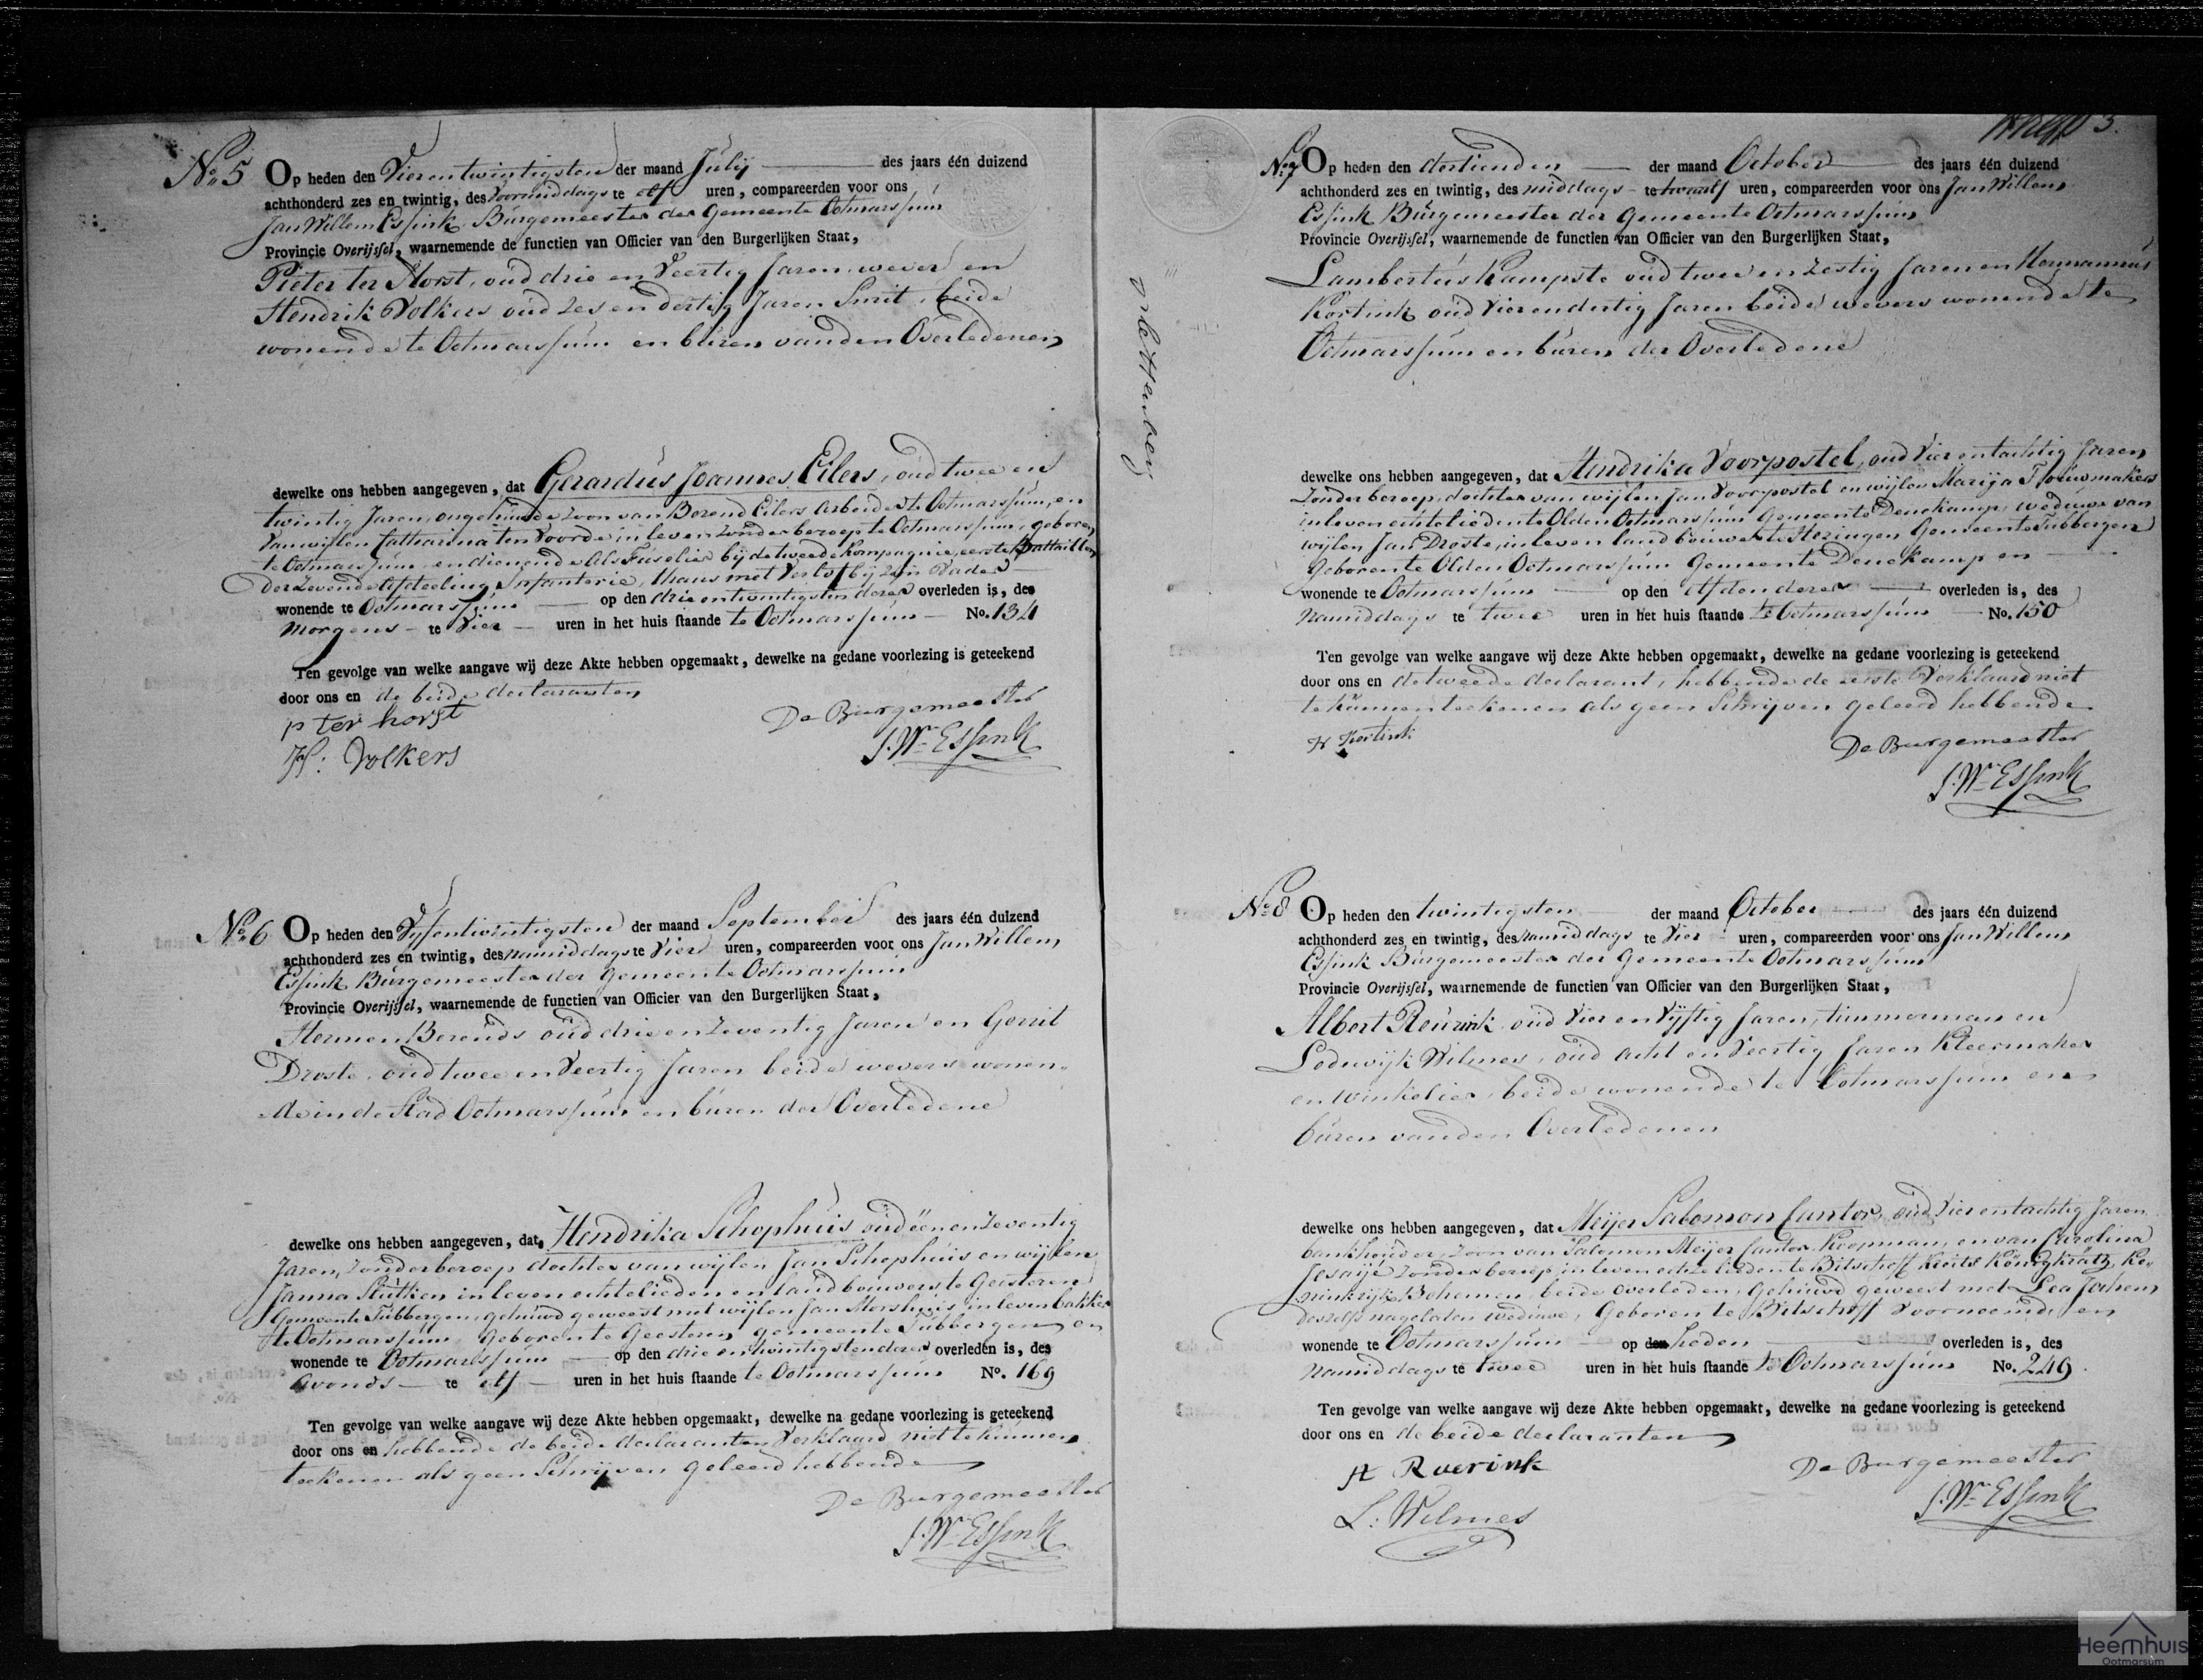 No 5 Op heden den Vierentwintigsten der maand Julij des jaars één duizend
achthonderd zes en twintig, des voormiddags te elf uren, compareerden voor ons
Jan Willem Essink Burgemeester der Gemeente Ootmarssum
Provincie Overijssel, waarnemende de functien van Officier van den Burgerlijken Staat,
Pieter ter Horst, oud drie en Veertig Jaren wever en
Hendrik Volkers oud zes en dertig Jaren Smit, beide
wonende te Ootmarssum en buren van den Overledenen
dewelke ons hebben aangegeven, dat Gerardus Joannes Eilers, oud twee en
twintig Jaren, ongehuwde zoon van Berend Eilers Arbeider te Ootmarssum, en
van wijlen Catharina ten Voorde in leven zonder beroep te Ootmarssum, geboren
te Ootmarssum en dienende als Fuselier bij de tweede kompagnie, eerste Battaillon
der zevende Afdeeling Infanterie, thans met Verlof bij zijn Vader
wonende te Ootmarssum op den drie entwintigsten dezer overleden is, des
morgens te Vier uren in het huis staande te Ootmarssum No. 134
Ten gevolge van welke aangave wij deze Akte hebben opgemaakt, dewelke na gedane voorlezing is geteekend
door ons en de beide declaranten
p ter horst
De Burgemeester
H: Volkers
J. Wm Essink
No 6 Op heden den Vijfentwintigsten der maand September des jaars één duizend
achthonderd zes en twintig, des namiddags te Vier uren, compareerden voor ons Jan Willem
Essink Burgemeester der Gemeente Ootmarssum
Provincie Overijssel, waarnemende de functien van Officier van den Burgerlijken Staat,
Hermen Berends oud drie en zeventig Jaren en Gerrit
Droste, oud twee en Veertig Jaren beide wevers wonen-
de in de Stad Ootmarssum en buren der Overledene
dewelke ons hebben aangegeven, dat Hendrika Schophuis oud één en zeventig
Jaren, zonder beroep dochter van wijlen Jan Schophuis en wijlen
Janna Slutken in leven echtelieden en landbouwers te Geisteren
Gemeente Tubbergen, gehuwd geweest met wijlen Jan Morshuis, in leven bakker
te Ootmarssum geboren te Geesteren gemeente Tubbergen en
wonende te Ootmarssum op den drie en twintigsten dezer overleden is, des
avonds te elf uren in het huis staande te Ootmarssum No. 169
Ten gevolge van welke aangave wij deze Akte hebben opgemaakt, dewelke na gedane voorlezing is geteekend
door ons en hebbende de beide declaranten Verklaard niet te kunnen
teekenen als geen Schrijven geleerd hebbende
De Burgemeester
J. Wm Essink
3.
No 7 Op heden den dertienden der maand October des jaars één duizend
achthonderd zes en twintig, des middags te twaalf uren, compareerden voor ons Jan Willem
Essink Burgemeester der Gemeente Ootmarssum
Provincie Overijssel, waarnemende de functien van Officier van den Burgerlijken Staat,
Lambertus Kampste oud twee en zestig Jaren en Hermannus
Kortink oud Vier en dertig Jaren beide wevers wonende te
Ootmarssum en buren der Overledene
dewelke ons hebben aangegeven, dat Hendrika Voorpostel, oud Vier entachtig Jaren
zonder beroep, dochter van wijlen Jan Voorpostel en wijlen Marija Trouwmakers
in leven echtelieden te Olden Ootmarssum Gemeente Denekamp, weduwe van
wijlen Jan Droste, in leven landbouwer te Hezingen Gemeente Tubbergen
Geboren te Olden Ootmarssum Gemeente Denekamp en
wonende te Ootmarssum op den elfden dezer overleden is, des
namiddags te twee uren in het huis staande te Ootmarssum No. 150
Ten gevolge van welke aangave wij deze Akte hebben opgemaakt, dewelke na gedane voorlezing is geteekend
door ons en de tweede declarant, hebbende de eerste Verklaard niet
te kunnen teekenen als geen Schrijven geleerd hebbende
H Kortink
De Burgemeester
J. Wm Essink
No 8 Op heden den twintigsten der maand October des jaars één duizend
achthonderd zes en twintig, des namiddags te Vier uren, compareerden voor ons Jan Willem
Essink Burgemeester der Gemeente Ootmarssum
Provincie Overijssel, waarnemende de functien van Officier van den Burgerlijken Staat,
Albert Reurink oud Vier en Vijftig Jaren, timmerman en
Lodewijk Wilmes, oud acht en Veertig Jaren Kleermaker
en winkelier, beide wonende te Ootmarssum en
buren van den Overledenen
dewelke ons hebben aangegeven, dat Meijer Salomon Cantor, oud Vier entachtig Jaren
bankhouder, zoon van Salomon Meijer Cantor Koopman, en van Carolina
Jesaije zonder beroep in leven echtelieden te Bitschoff Kreits Königkratz, Ko-
ninkrijk Bohemen, beide overleden, Gehuwd geweest met Lea Jochem
deszelfs nagelaten weduwe, Geboren te Bitschoff Voornoemd en
wonende te Ootmarssum op den heden overleden is, des
Namiddags te twee uren in het huis staande te Ootmarssum No. 249
Ten gevolge van welke aangave wij deze Akte hebben opgemaakt, dewelke na gedane voorlezing is geteekend
door ons en de beide declaranten
A Ruerink
De Burgemeester
L: Wilmes
J. Wm Essink
Heemhuis
Ootmarsum